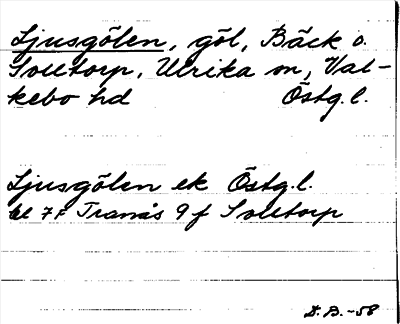 Ljusgölen, göl, Bäck o.
Solltorp, Ulrika sn, Val-
kebo hd Östg.l.
Ljusgölen ek Östg.l.
bl 7F Tranås 9 f Solltorp
D.B.-58